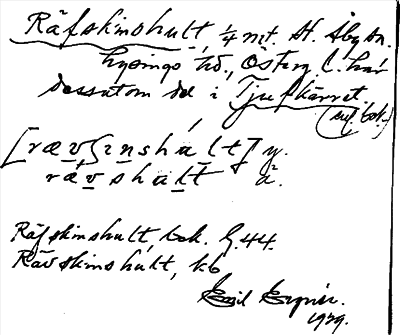 Räfskinshult, ¼ mt. St. Åby sn.
Lysings hd., Österg. l. har
dessutom del i Tjufkärret.
(enl. bok.)
[rævʃinshult] y.
rævshult ä.
Räfskinshult, bok. G. 44.
Rävskinshult, kb
Emil
1929.